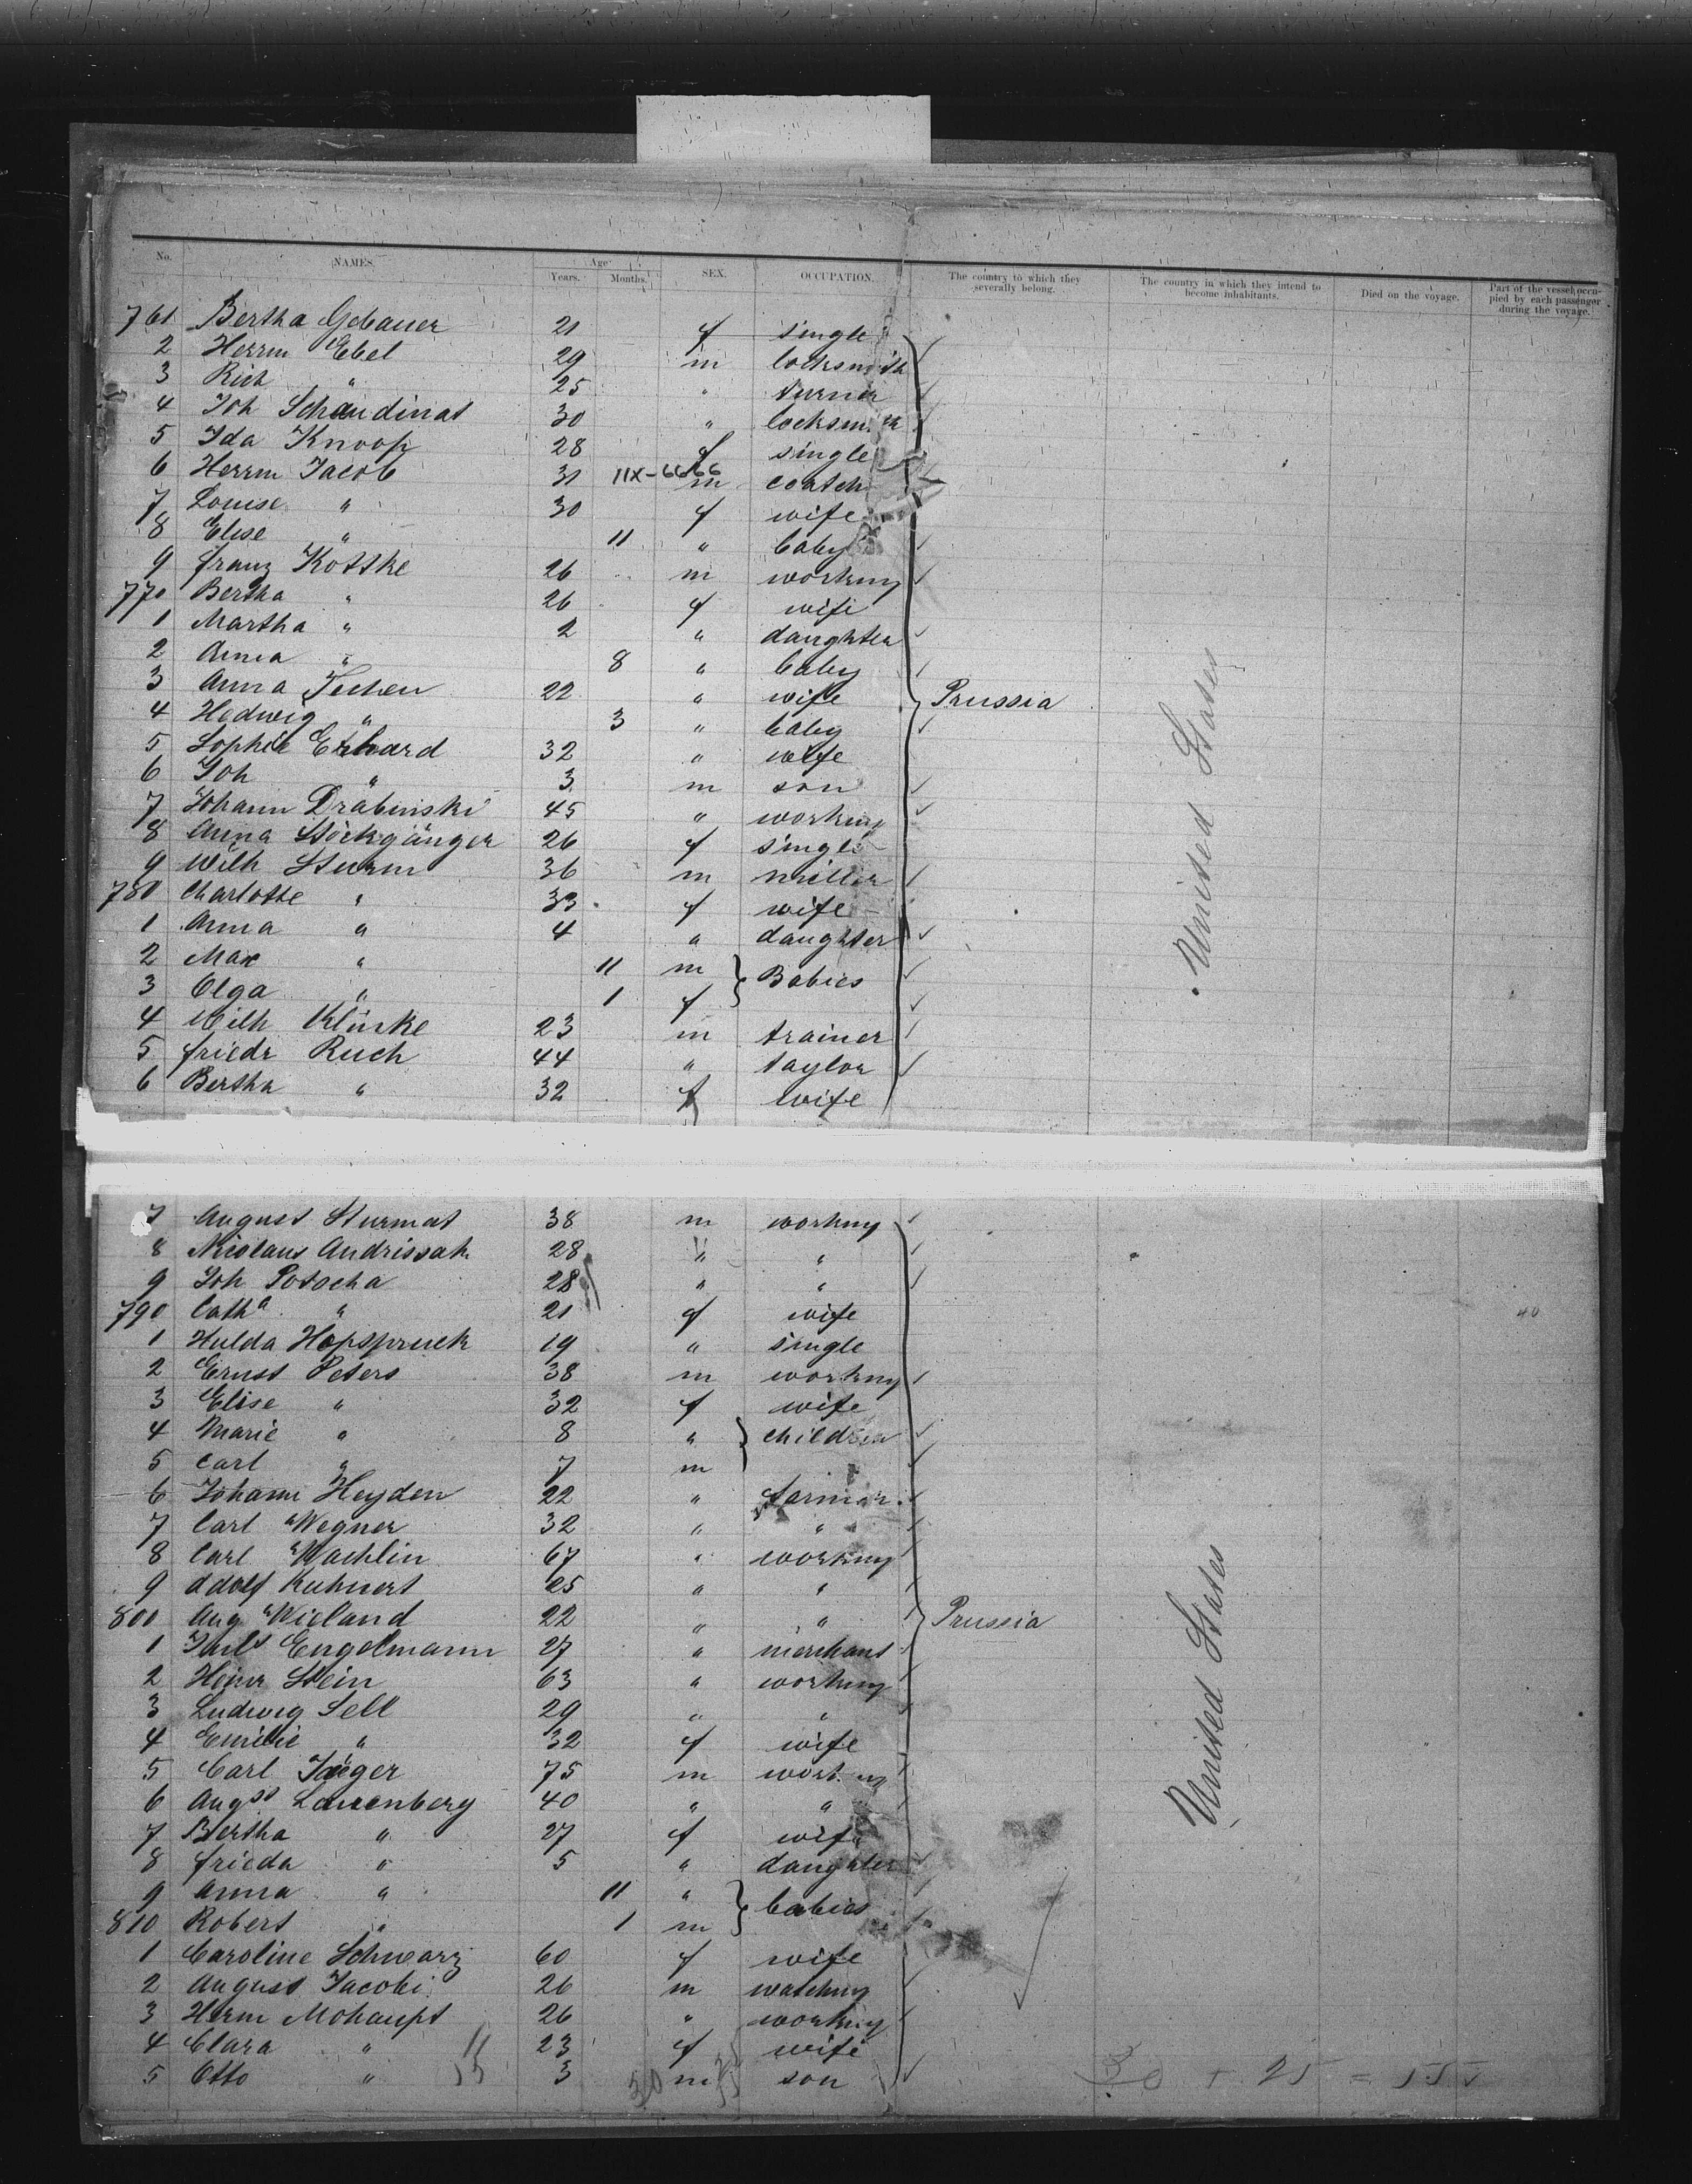 No. NAMES. Age Years. Months. SEX. OCCUPATION. The country to which they severally belong. The country in which they intend to become inhabitants. Died on the voyage. Part of the vessel occupied by each passenger during the voyage.
761 Bertha Gebauer 21 f single
2 Herrm Ebel 29 m locksmith
3 Rich " 25 " turner
4 Joh Schaudinat 30 " locksmith
5 Ida Knoop 28 f single
6 Herrm Jacob 31 11X-6666 m coatch
7 Louise " 30 f wife
8 Elise " 11 " baby
9 franz Kottke 26 m working
770 Bertha " 26 f wife
1 Martha " 2 " daughter
2 Anna " 8 " baby
3 Anna 22 " wife Prussia
4 Hedwig " 3 " baby
5 Sophie Erhard 32 " wife
6 Joh " 3 m son
7 Johann Drabinski 45 " working
8 Anna Stöckgänger 26 f single
9 Wilh Sturm 36 m miller
780 Charlotte " 33 f wife
1 Anna " 4 " daughter
2 Max " 11 m } Babies
3 Olga " 1 f
4 Wilh 23 m trainer
5 friedr Ruch 44 " taylor
6 Bertha " 32 f wife
United States
7 August Sturmat 38 m working
8 Nicolaus Andrissak 28 " "
9 Joh Potocha 28 " "
790 Cath a " 21 f wife
1 Hulda Hopspruck 19 " single
2 Ernst Peters 38 m working
3 Elise " 32 f wife
4 Marie " 8 " } children
5 Carl " 7 m
6 Johann Heyden 22 " farmer
7 Carl Wegner 32 " "
8 Carl Wachlin 67 " working
9 Adolf Kuhnert 25 " "
800 Aug Wieland 22 " " Prussia
1 Engelmann 27 " merchant
2 Heinr Stein 63 " working
3 Ludwig Sell 29 " "
4 Emilie " 32 f wife
5 Carl Jaeger 75 m working
6 Augst Lauenberg 40 " "
7 Bertha " 27 f wife
8 frieda " 5 " daughter
9 Anna " 11 " } babies
810 Robert " 1 m
1 Caroline Schwarz 60 f wife
2 August Jacobi 26 m watching
3 Herm Mohaupt 26 " working
4 Clara " 23 f wife
5 Otto " 3 m son
United States
40